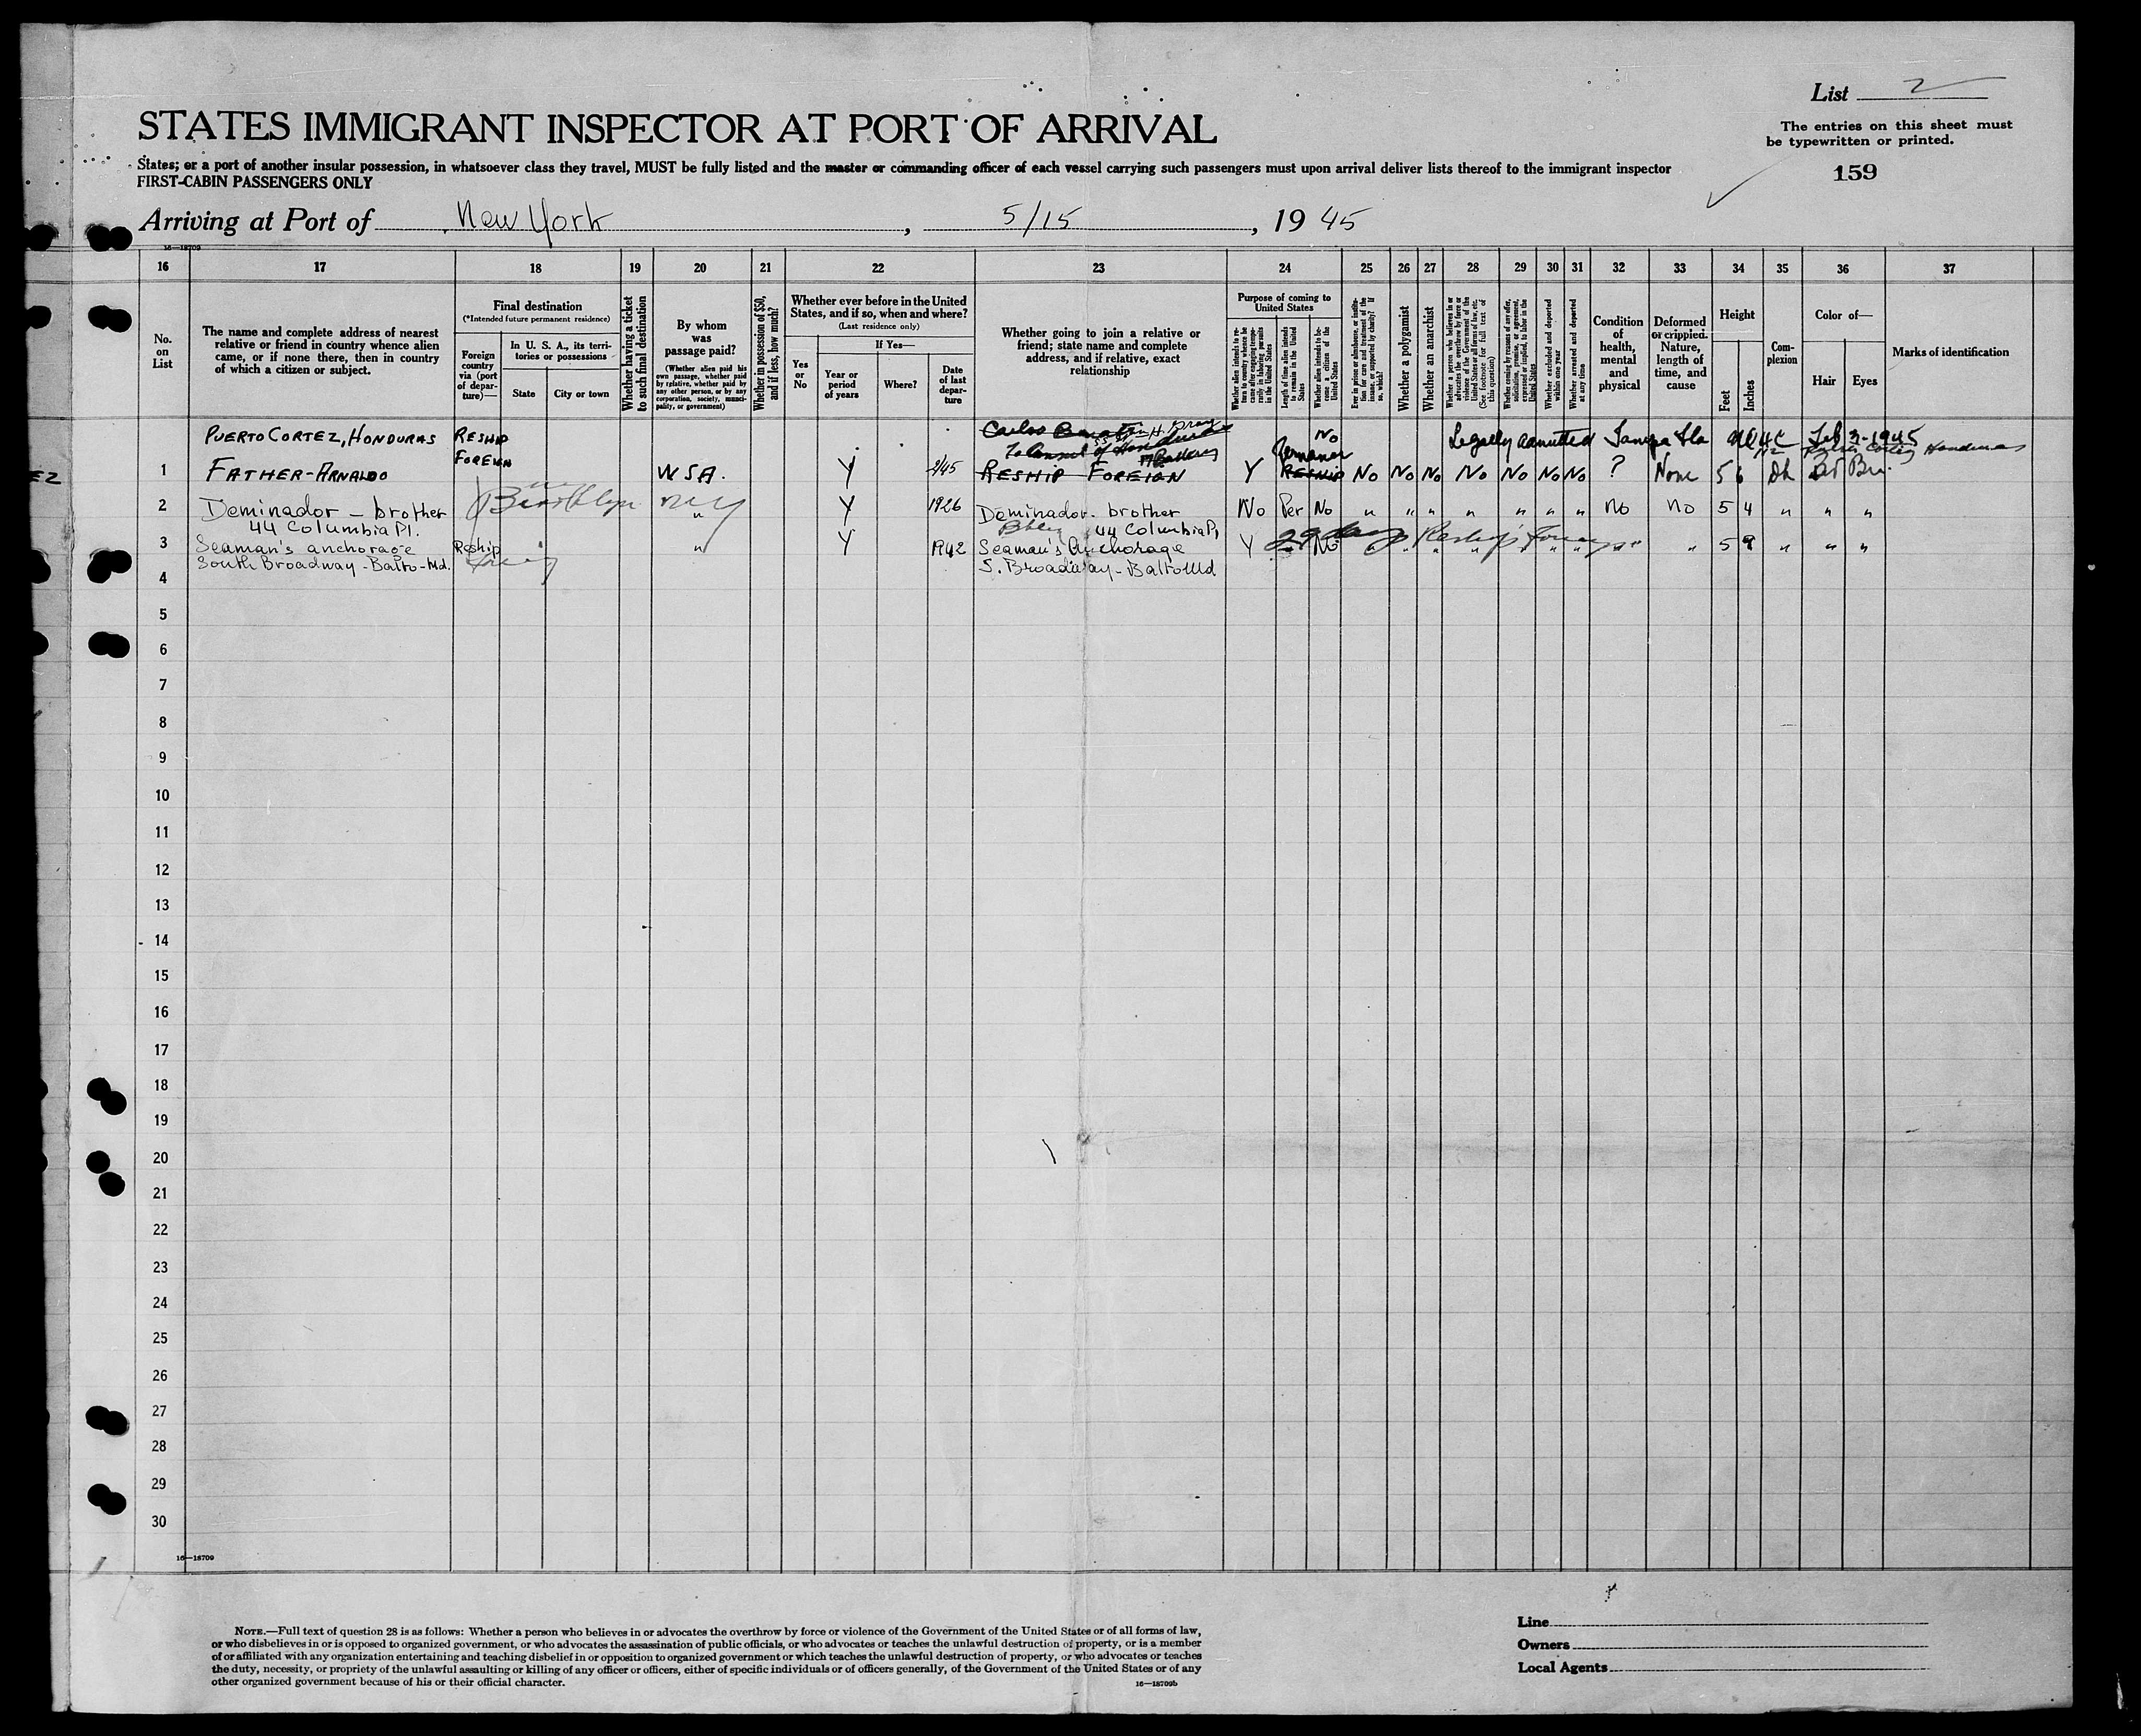 List 2
STATES IMMIGRANT INSPECTOR AT PORT OF ARRIVAL
The entries on this sheet must
be typewritten or printed.
States; or a port of another insular possession, in whatsoever class they travel, MUST be fully listed and the master or commanding officer of each vessel carrying such passengers must upon arrival deliver lists thereof to the immigrant inspector
FIRST-CABIN PASSENGERS ONLY
159
Arriving at Port of New York, 5/15, 1945
16—18709
16 17 18 19 20 21 22 23 24 25 26 27 28 29 30 31 32 33 34 35 36 37
No. on List
The name and complete address of nearest
relative or friend in country whence alien
came, or if none there, then in country
of which a citizen or subject.
Final destination
(*Intended future permanent residence)
Foreign country via (port of departure)—
In U. S. A., its territories or possessions
State
City or town
Whether having a ticket to such final destination
By whom was passage paid?
(Whether alien paid his own passage, whether paid by relative, whether paid by any other person, or by any corporation, society, municipality, or government)
Whether in possession of $50, and if less, how much?
Whether ever before in the United States, and if so, when and where?
(Last residence only)
Yes or No
If Yes—
Year or period of years
Where?
Date of last departure
Whether going to join a relative or
friend; state name and complete
address, and if relative, exact
relationship
Purpose of coming to United States
Whether alien intends to return to country whence he came after engaging temporarily in laboring pursuits in the United States
Length of time alien intends to remain in the United States
Whether alien intends to become a citizen of the United States
Ever in prison or almshouse, or institution for care and treatment of the insane, or supported by charity? If so, which?
Whether a polygamist
Whether an anarchist
Whether a person who believes in or advocates the overthrow by force or violence of the Government of the United States or all forms of law, etc. (See footnote for full text of this question)
Whether coming by reasons of any offer, solicitation, promise, or agreement, expressed or implied, to labor in the United States
Whether excluded and deported within one year
Whether arrested and deported at any time
Condition of health, mental and physical
Deformed or crippled. Nature, length of time, and cause
Height
Feet
Inches
Complexion
Color of—
Hair
Eyes
Marks of identification
PUERTO CORTEZ, HONDURAS RESHIP Carlos No Legally admitted Tampa Fla Feb 2-1945
FOREIGN To Consul of Honduras Permanent Honduras
EZ 1 FATHER-ARNALDO WSA. Y 2/45 RESHIP FOREIGN Y RESHIP No No No No No No No ? None 5 6 Dk Bl Bru.
2 Deminador - brother Brooklyn NY " Y 1926 Deminador - brother No Per No " " " " " " " No No 5 4 " " "
44 Columbia Pl. 44 Columbia Pl
3 Seaman's anchorage Reship " Y 1942 Seaman's Anchorage Y 29 days No " " " Reship Foreign " " 5 9 " " "
South Broadway - Balto - Md. Foreig S. Broadway - Balto Md
4
5
6
7
8
9
10
11
12
13
14
15
16
17
18
19
20
21
22
23
24
25
26
27
28
29
30
16—18709
NOTE.—Full text of question 28 is as follows: Whether a person who believes in or advocates the overthrow by force or violence of the Government of the United States or of all forms of law,
or who disbelieves in or is opposed to organized government, or who advocates the assassination of public officials, or who advocates or teaches the unlawful destruction of property, or is a member
of or affiliated with any organization entertaining and teaching disbelief in or opposition to organized government or which teaches the unlawful destruction of property, or who advocates or teaches
the duty, necessity, or propriety of the unlawful assaulting or killing of any officer or officers, either of specific individuals or of officers generally, of the Government of the United States or of any
other organized government because of his or their official character.
16—18709b
Line
Owners
Local Agents